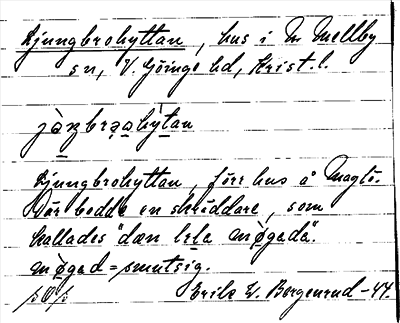 Ljungbrohyttan, hus i N Mellby
sn, V. Göinge hd, Krist. l.
jàṇbrạọhỳtan
Ljungbrohyttan, förr hus å Maglö.
Där bodde en skräddare, som
kallades "dæn lela møgada".
møgad = smutsig.
Erik W. Borgenrud -44.